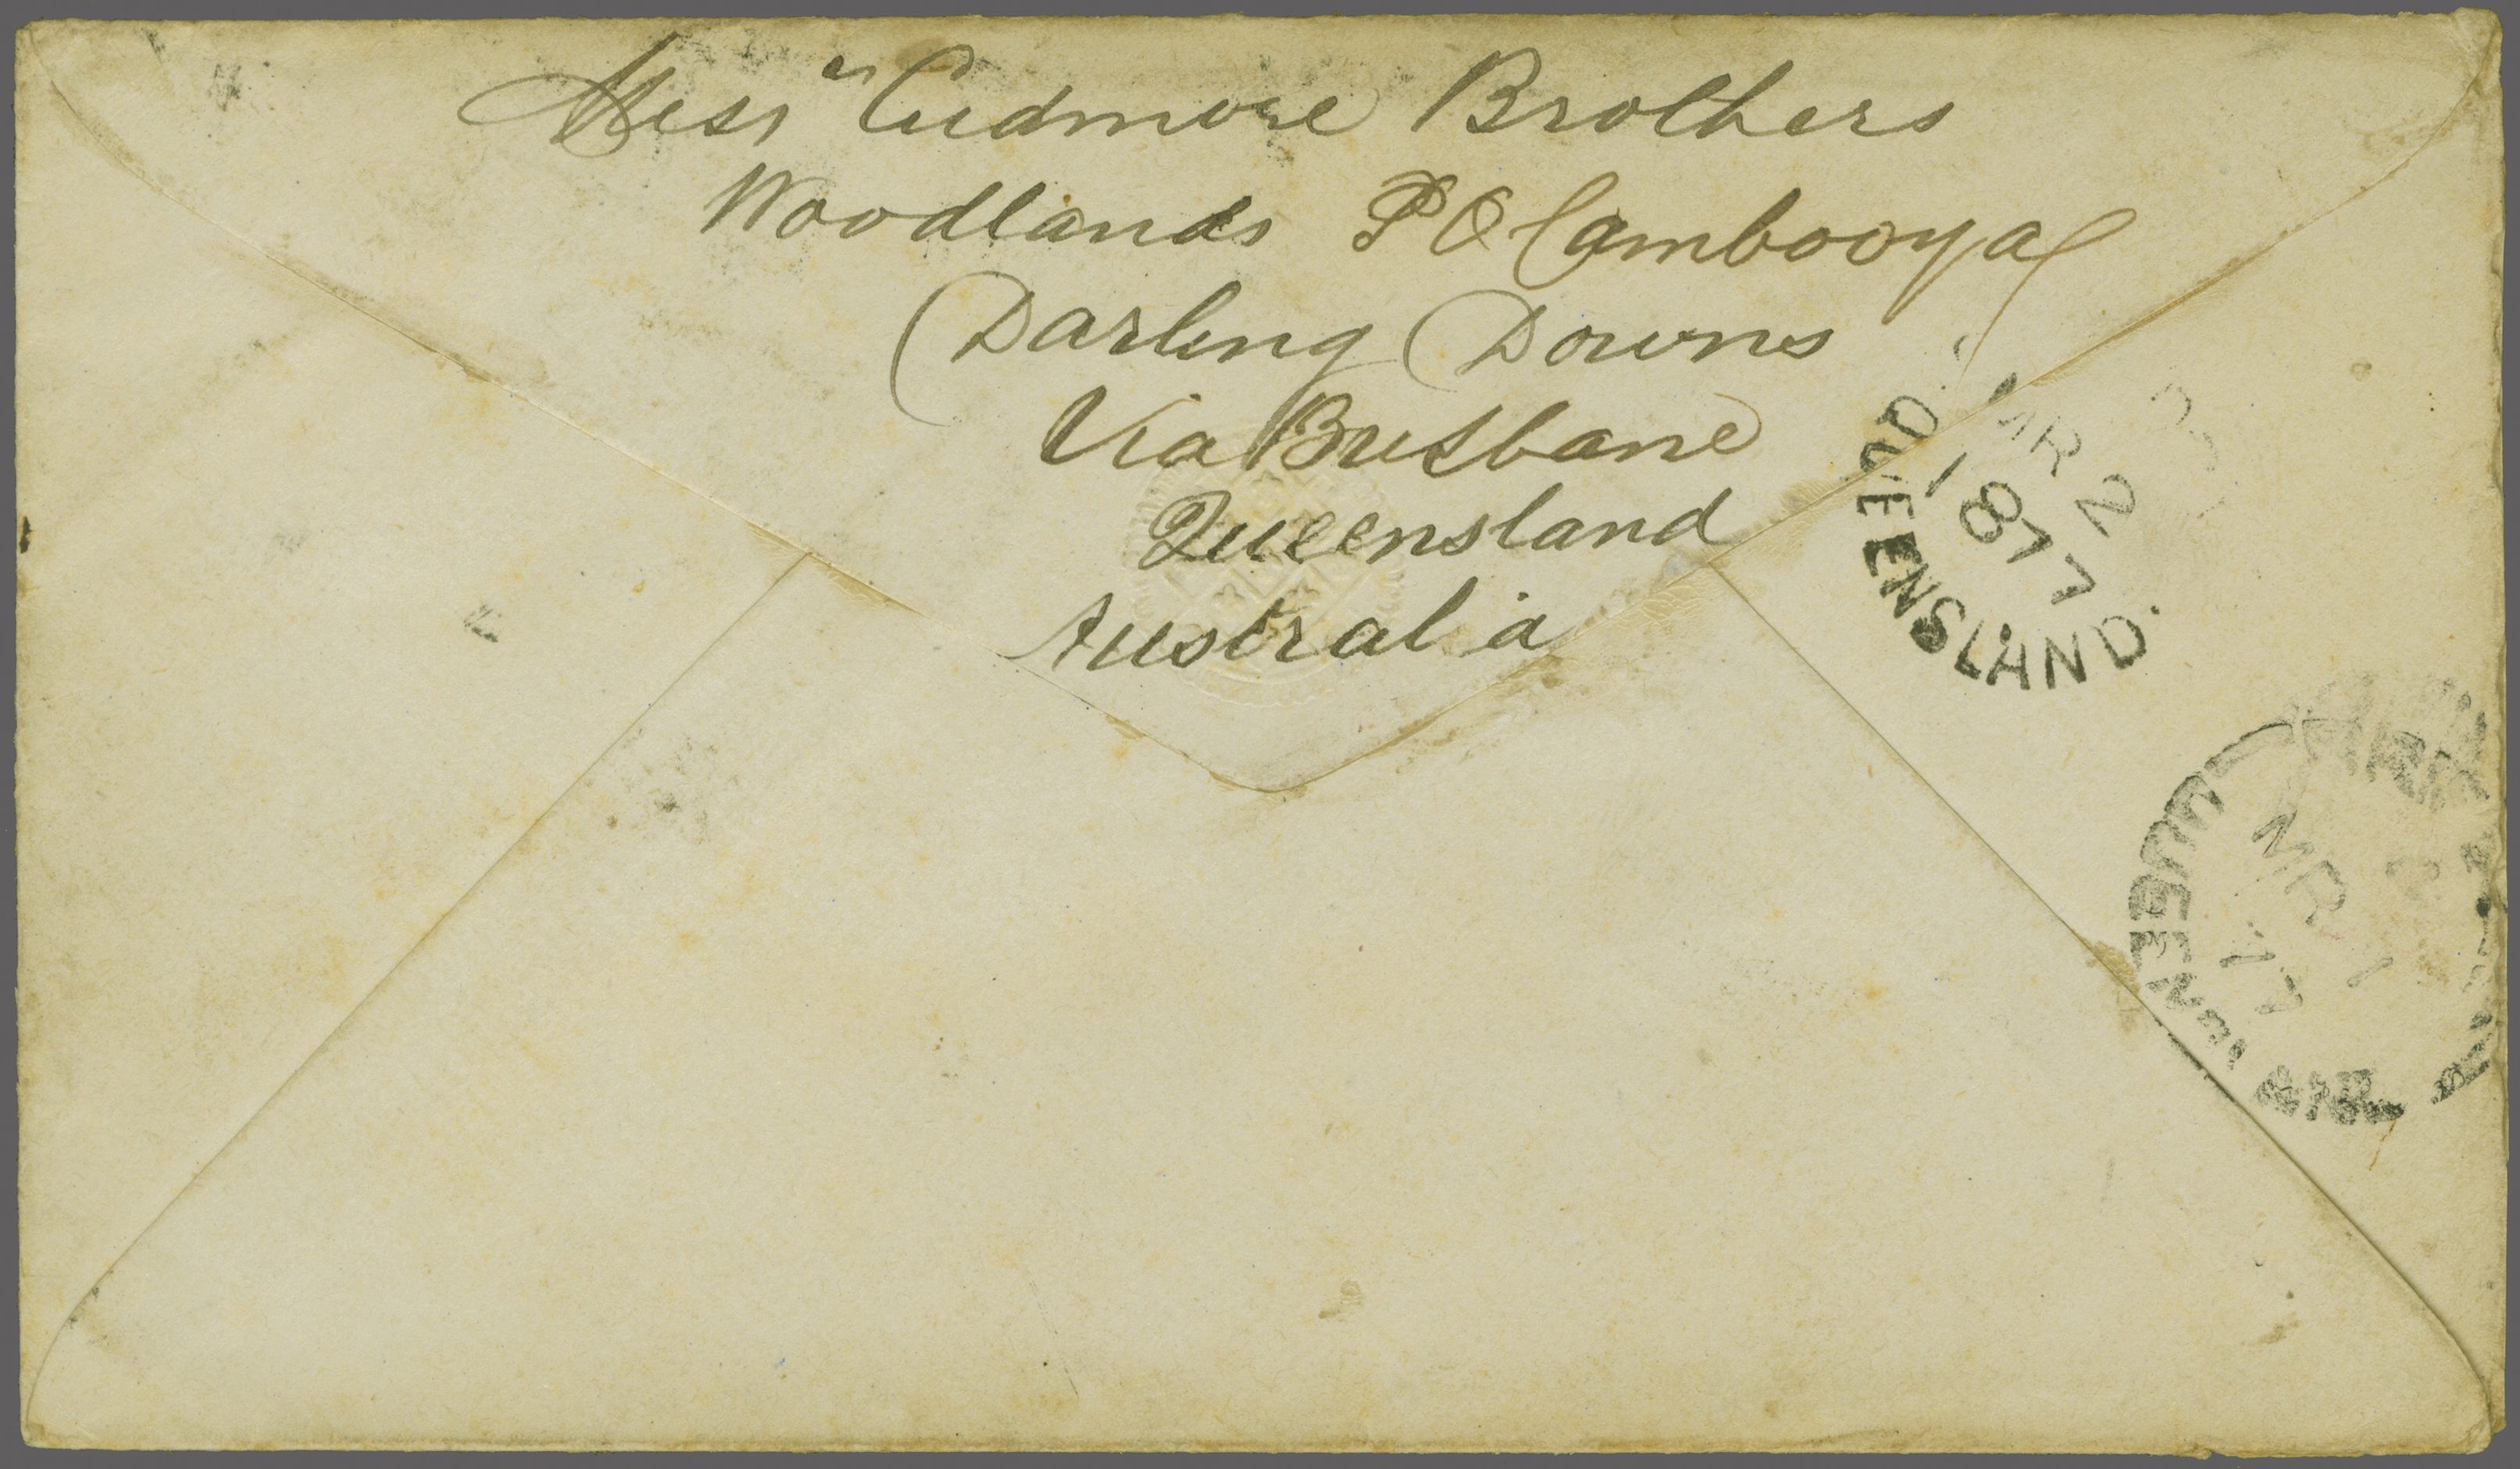 Mess<sup>rs</sup> Cudmore Brothers
Woodlands P O Cambooya
Darling Downs
Via Brisbane
Queensland
Australia
MR 2
1877
QUEENSLAND
MR 1
77
QUEENSL